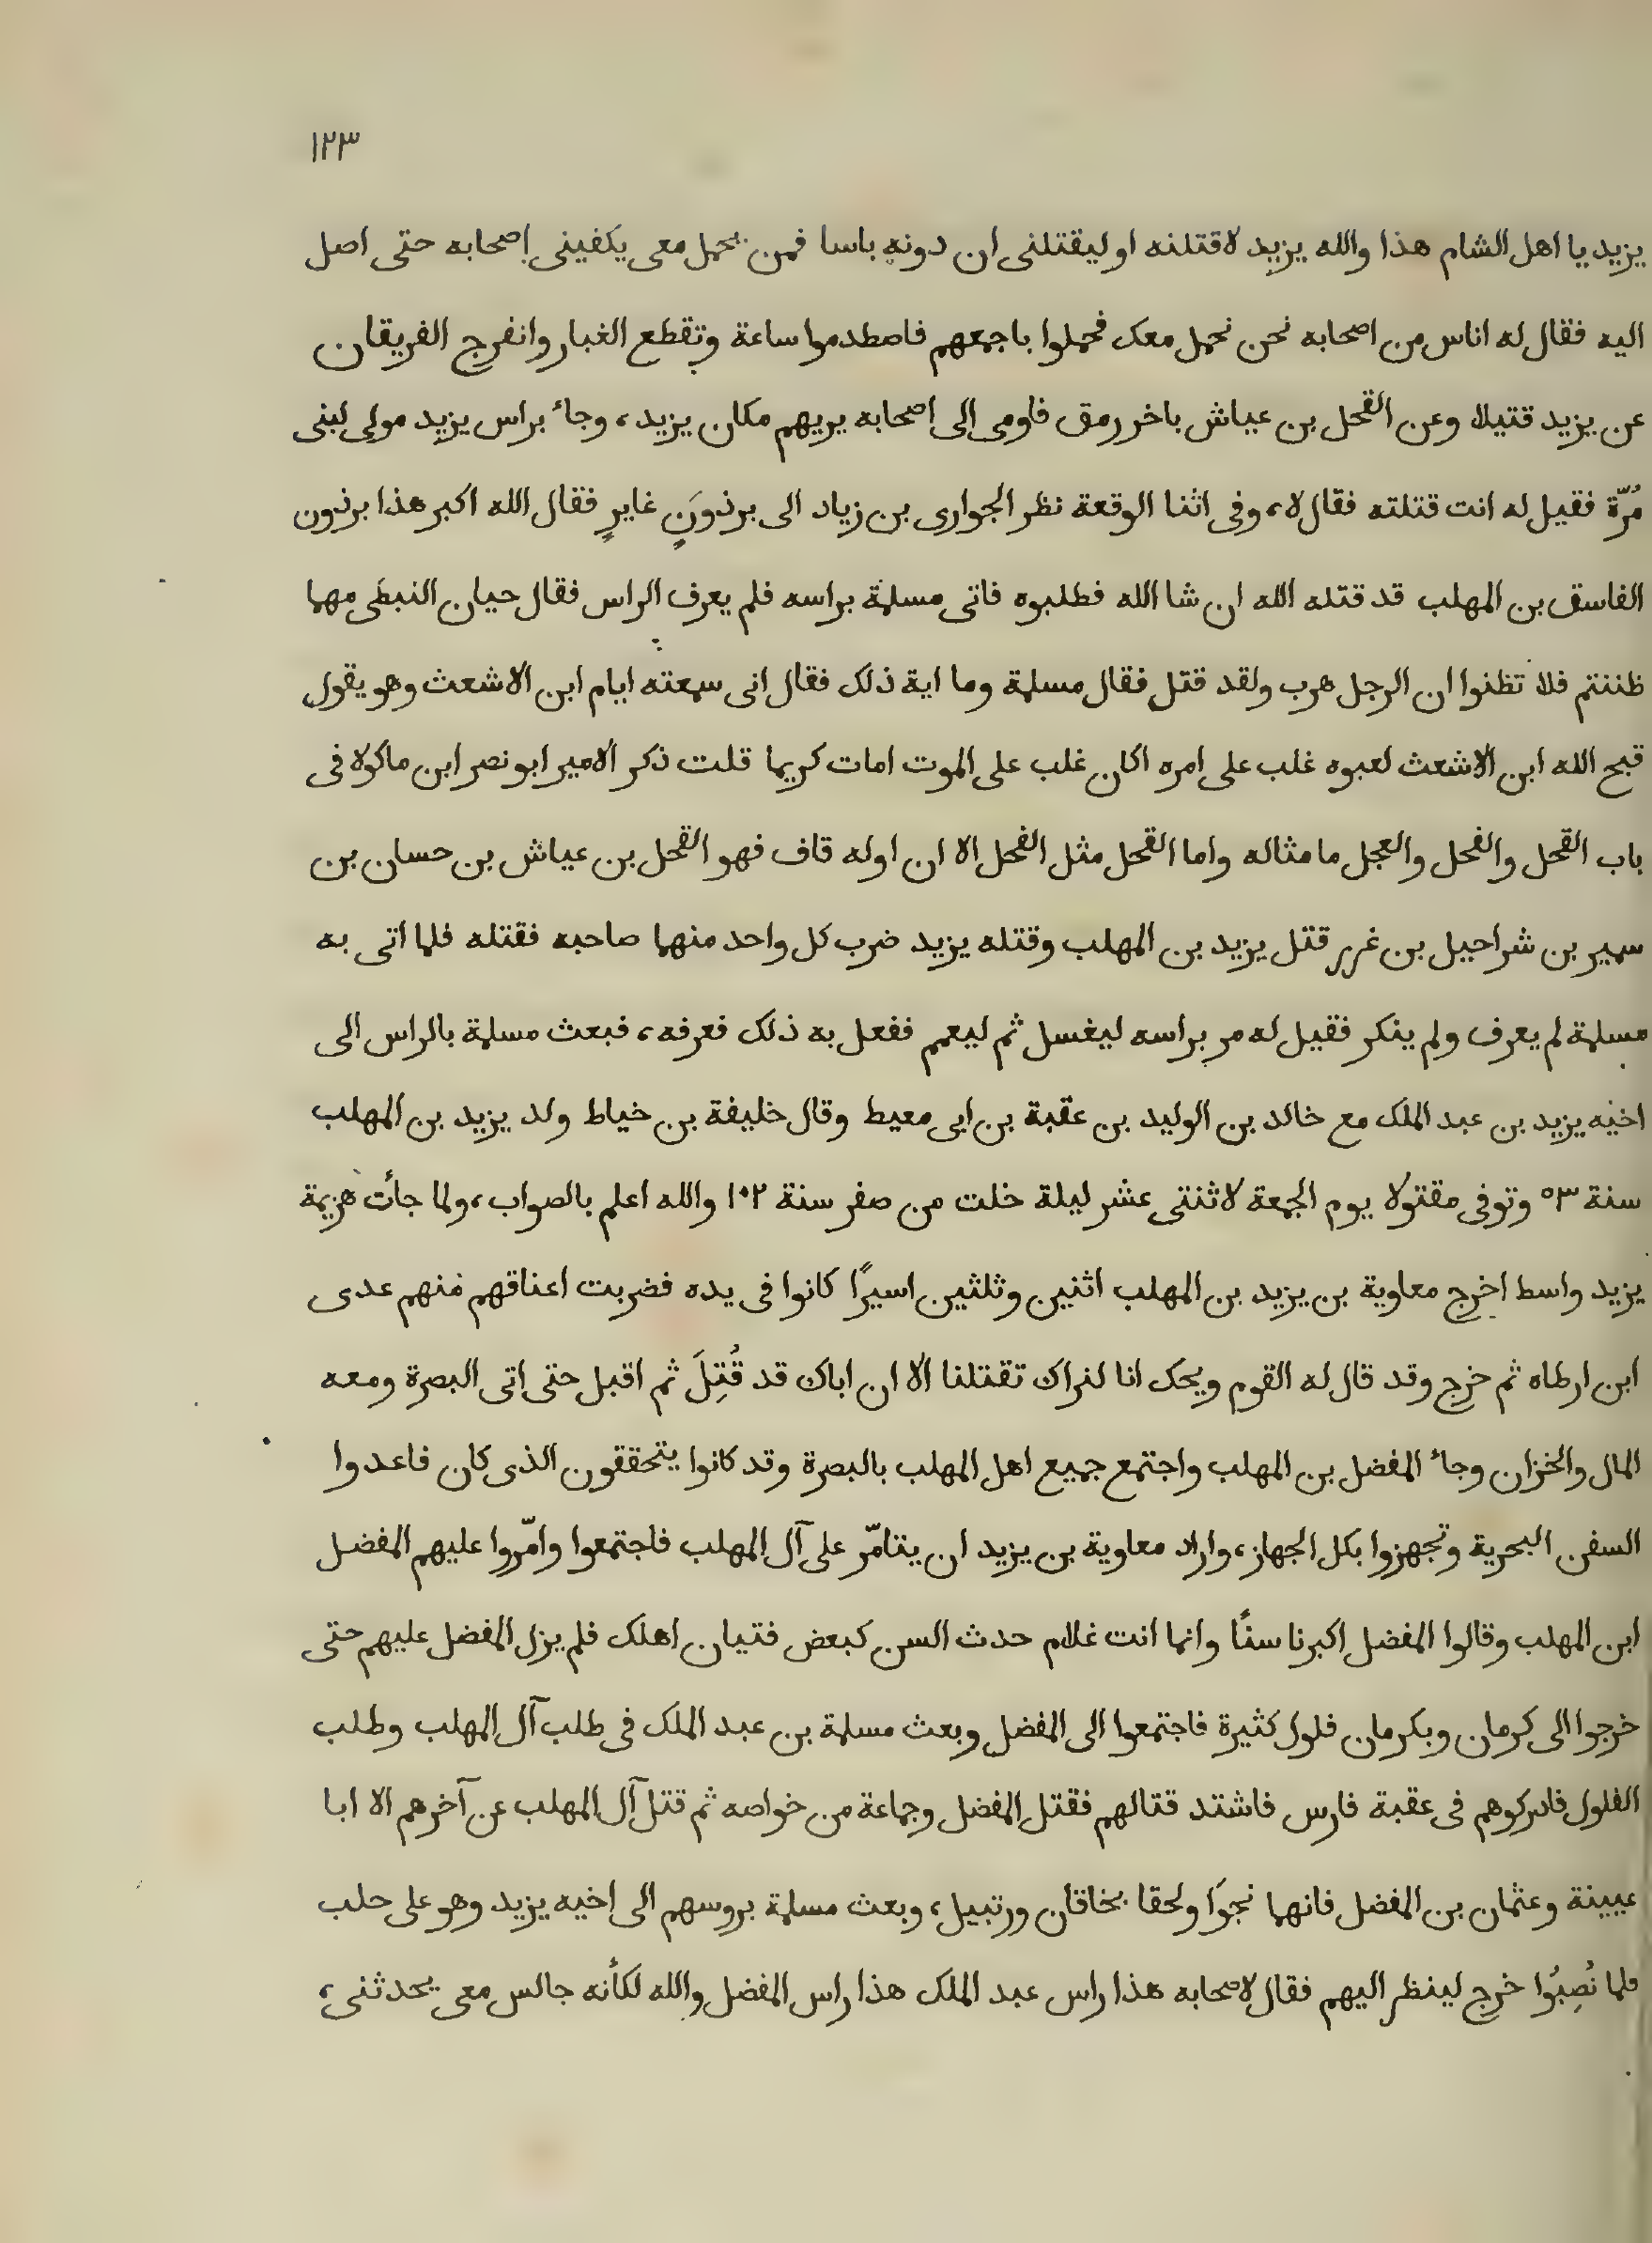 ١٢٣
يزيد يا اهل الشام هذا والله يزيد لاقتلنه او ليقتلنى ان دونه باسا فمن يحمل معى يكفينى اصحابه حتى اصل
اليه فقال له اناس من اصحابه نحن نحمل معك فحملوا باجمعهم فاصطدموا ساعة وتقطع الغبار وانفرج الفريقان
عن يزيد قتيلا وعن القحل بن عياش باخر رمق فاومى الى اصحابه يريهم مكان يزيد، وجاء براس يزيد مولى لبنى
مُرّة فقيل له انت قتلته فقال لا، وفى اثنا الوقعة نظر الجوارى بن زياد الى برذونٍ غايرٍ فقال الله اكبر هذا برذون
الفاسق بن المهلب قد قتله الله ان شا الله فطلبوه فاتى مسلمة براسه فلم يعرف الراس فقال حيان النبطى مهما
ظننتم فلا تظنوا ان الرجل هرب ولقد قتل فقال مسلمة وما اية ذلك فقال انى سمعته ايام ابن الاشعث وهو يقول
قبح الله ابن الاشعث لعبوه غلب على امره اكان غلب على الموت امات كريما قلت ذكر الامير ابو نصر ابن ماكولا فى
باب القحل والفحل والعجل ما مثاله واما القحل مثل الفحل الا ان اوله قاف فهو القحل بن عياش بن حسان بن
سمير بن شراحيل بن غرر قتل يزيد بن المهلب وقتله يزيد ضرب كل واحد منهما صاحبه فقتله فلما اتى به
مسلمة لم يعرف ولم ينكر فقيل له مر براسه ليغسل ثم ليعمم ففعل به ذلك فعرفه، فبعث مسلمة بالراس الى
اخيه يزيد بن عبد الملك مع خالد بن الوليد بن عقبة بن ابى معيط وقال خليفة بن خياط ولد يزيد بن المهلب
سنة ٥٣ وتوفى مقتولا يوم الجمعة لاثنتى عشر ليلة خلت من صفر سنة ١٠٢ والله اعلم بالصواب، ولما جأت هزيمة
يزيد واسط اخرج معاوية بن يزيد بن المهلب اثنين وثلثين اسيرًا كانوا فى يده فضربت اعناقهم منهم عدى
ابن ارطاه ثم خرج وقد قال له القوم ويحك انا لنراك تقتلنا الا ان اباك قد قُتِلَ ثم اقبل حتى اتى البصرة ومعه
المال والخزان وجاء المفضل بن المهلب واجتمع جميع اهل المهلب بالبصرة وقد كانوا يتحققون الذى كان فاعدوا
السفن البحرية وتجهزوا بكل الجهاز، واراد معاوية بن يزيد ان يتامّر على آل المهلب فاجتمعوا وامّروا عليهم المفضل
ابن المهلب وقالوا المفضل اكبرنا سنًا وانما انت غلام حدث السن كبعض فتيان اهلك فلم يزل المفضل عليهم حتى
خرجوا الى كرمان وبكرمان فلول كثيرة فاجتمعوا الى المفضل وبعث مسلمة بن عبد الملك فى طلب آل المهلب وطلب
الفلول فادركوهم فى عقبة فارس فاشتد قتالهم فقتل المفضل وجماعة من خواصه ثم قتل آل المهلب عن آخرهم الا ابا
عيينة وعثمان بن المفضل فانهما نجوَا ولحقا بخاقان ورتبيل، وبعث مسلمة بروسهم الى اخيه يزيد وهو على حلب
فلما نُصِبُوا خرج لينظر اليهم فقال لاصحابه هذا راس عبد الملك هذا راس المفضل والله لكأنه جالس معى يحدثنى،